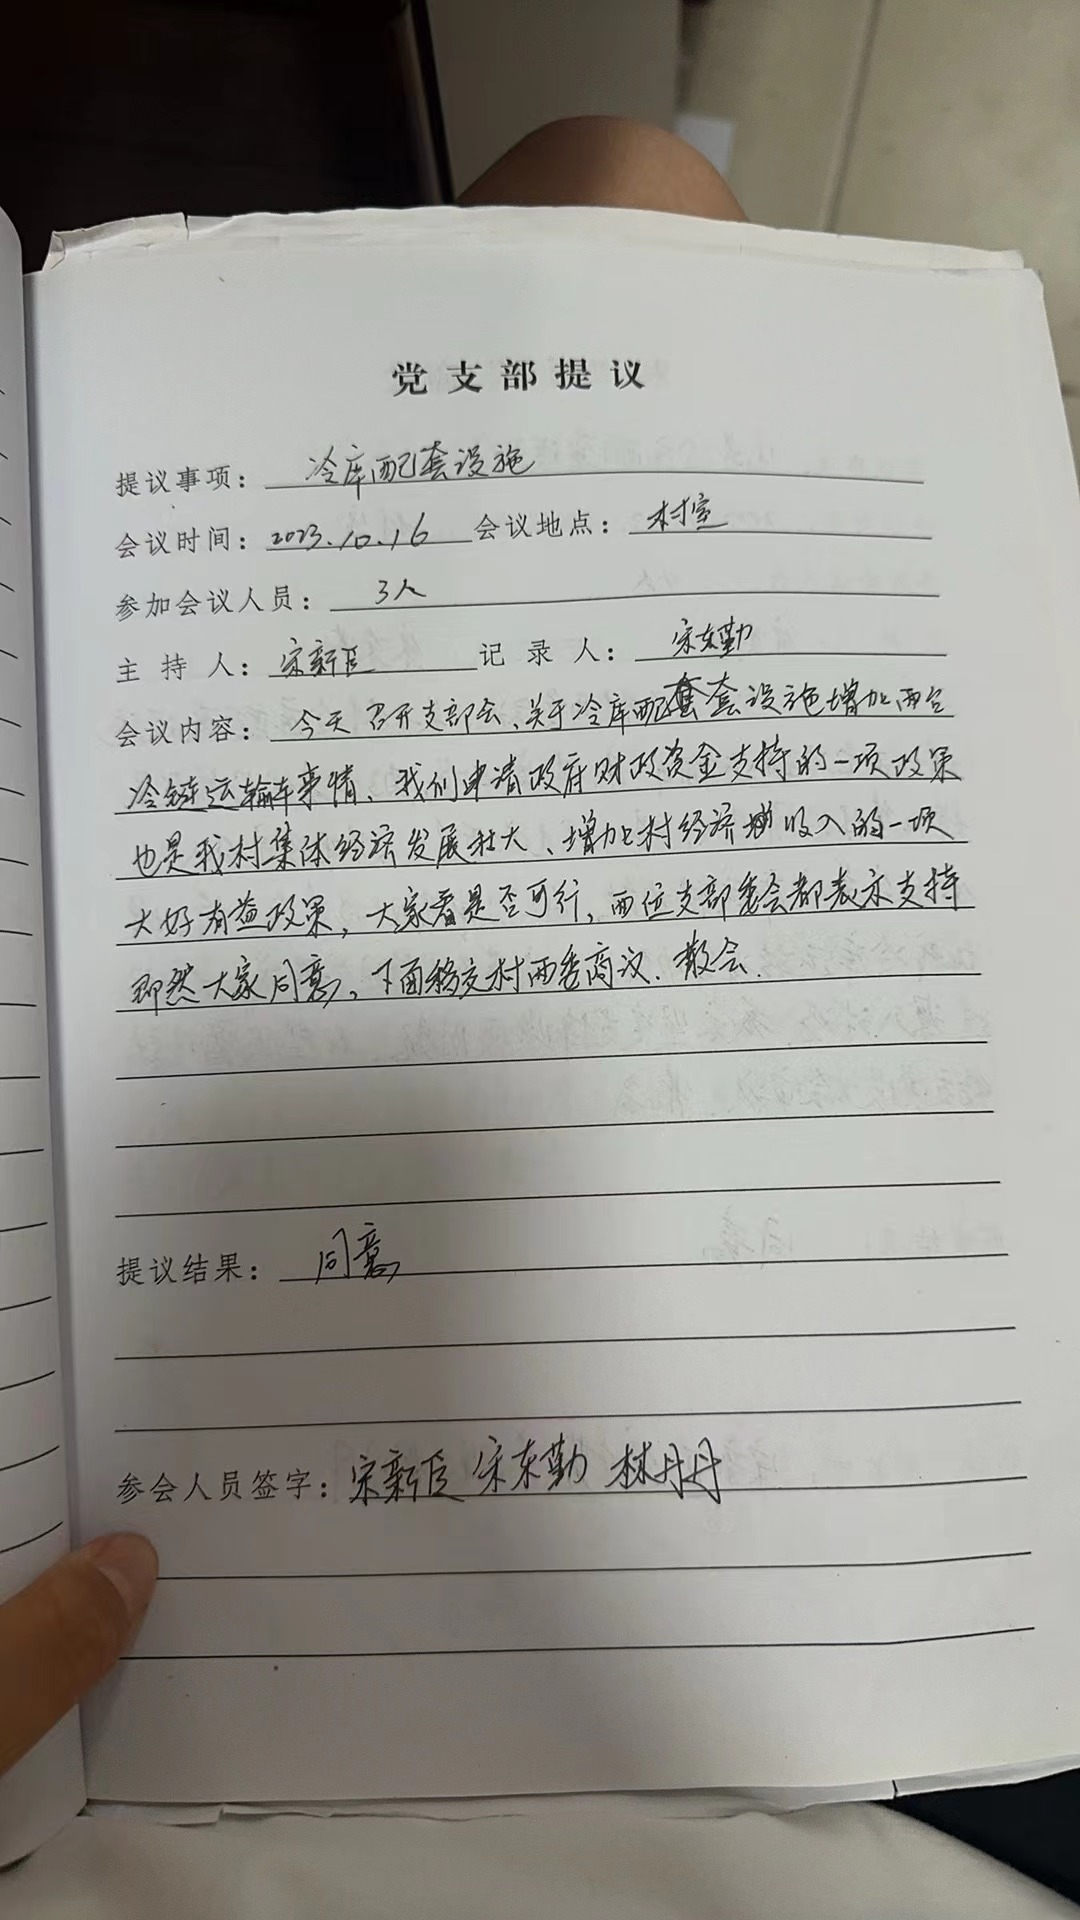 党支部提议
提议事项：冷库配套设施
会议时间：2023.10.16 会议地点：村室
参加会议人员：3人
主持人：宋新臣 记录人：宋东勤
会议内容：今天召开支部会、关于冷库配套设施增加两台
冷链运输车事情、我们申请政府财政资金支持的一项政策
也是我村集体经济发展壮大、增加村经济收入的一项
大好有益政策，大家看是否可行，两位支部委会都表示支持
即然大家同意，下面移交村两委商议.散会.
提议结果：同意
参会人员签字：宋新臣 宋东勤 林丹丹